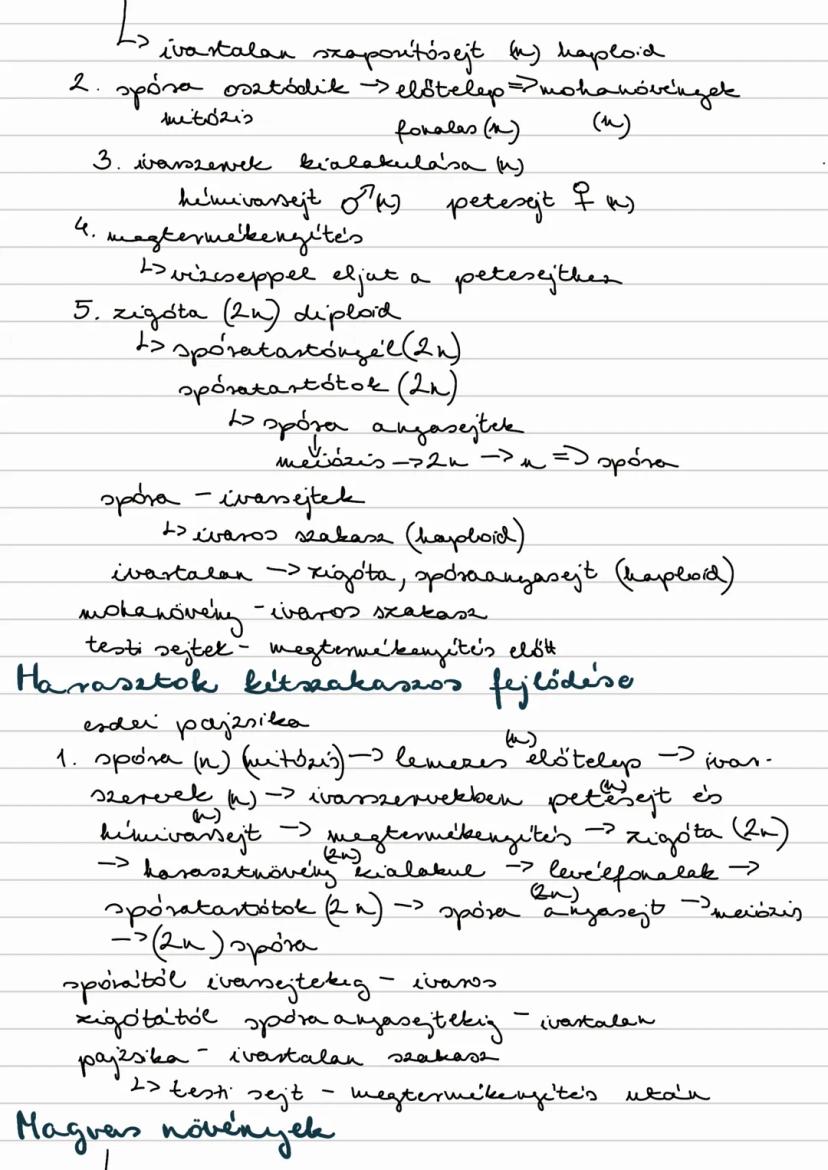 ↳ ivartalan szaporítósejt (n) haploid
2. spóra osztódik → előtelep => mohanövények
mitózis fonalas (n) (n)
3. ivarszervek kialakulása (n)
hímivarsejt ♂ (n) petesejt ♀ (n)
4. megtermékenyítés
↳ vízcseppel eljut a petesejthez
5. zigóta (2n) diploid
↳ spóratartónyél (2n)
spóratartótok (2n)
↳ spóra anyasejtek
↓
meiózis → 2n → n => spóra
spóra - ivarsejtek
↳ ivaros szakasz (haploid)
ivartalan → zigóta, spóraanyasejt (haploid)
mohanövény - ivaros szakasz
testi sejtek - megtermékenyítés előtt
Harasztok kétszakaszos fejlődése
erdei pajzsika
1. spóra (n) (mitózis) → lemezes (n) előtelep → ivar-
szervek (n) → ivarszervekben petesejt (n) és
hímivarsejt (n) → megtermékenyítés → zigóta (2n)
→ harasztnövény (2n) kialakul → levélfonalak →
spóratartótok (2n) → spóra anyasejt (2n) → meiózis
→ (2n) spóra
spórától ivarsejtekig - ivaros
zigótától spóraanyasejtekig - ivartalan
pajzsika - ivartalan szakasz
↳ testi sejt - megtermékenyítés után
Magvas növények